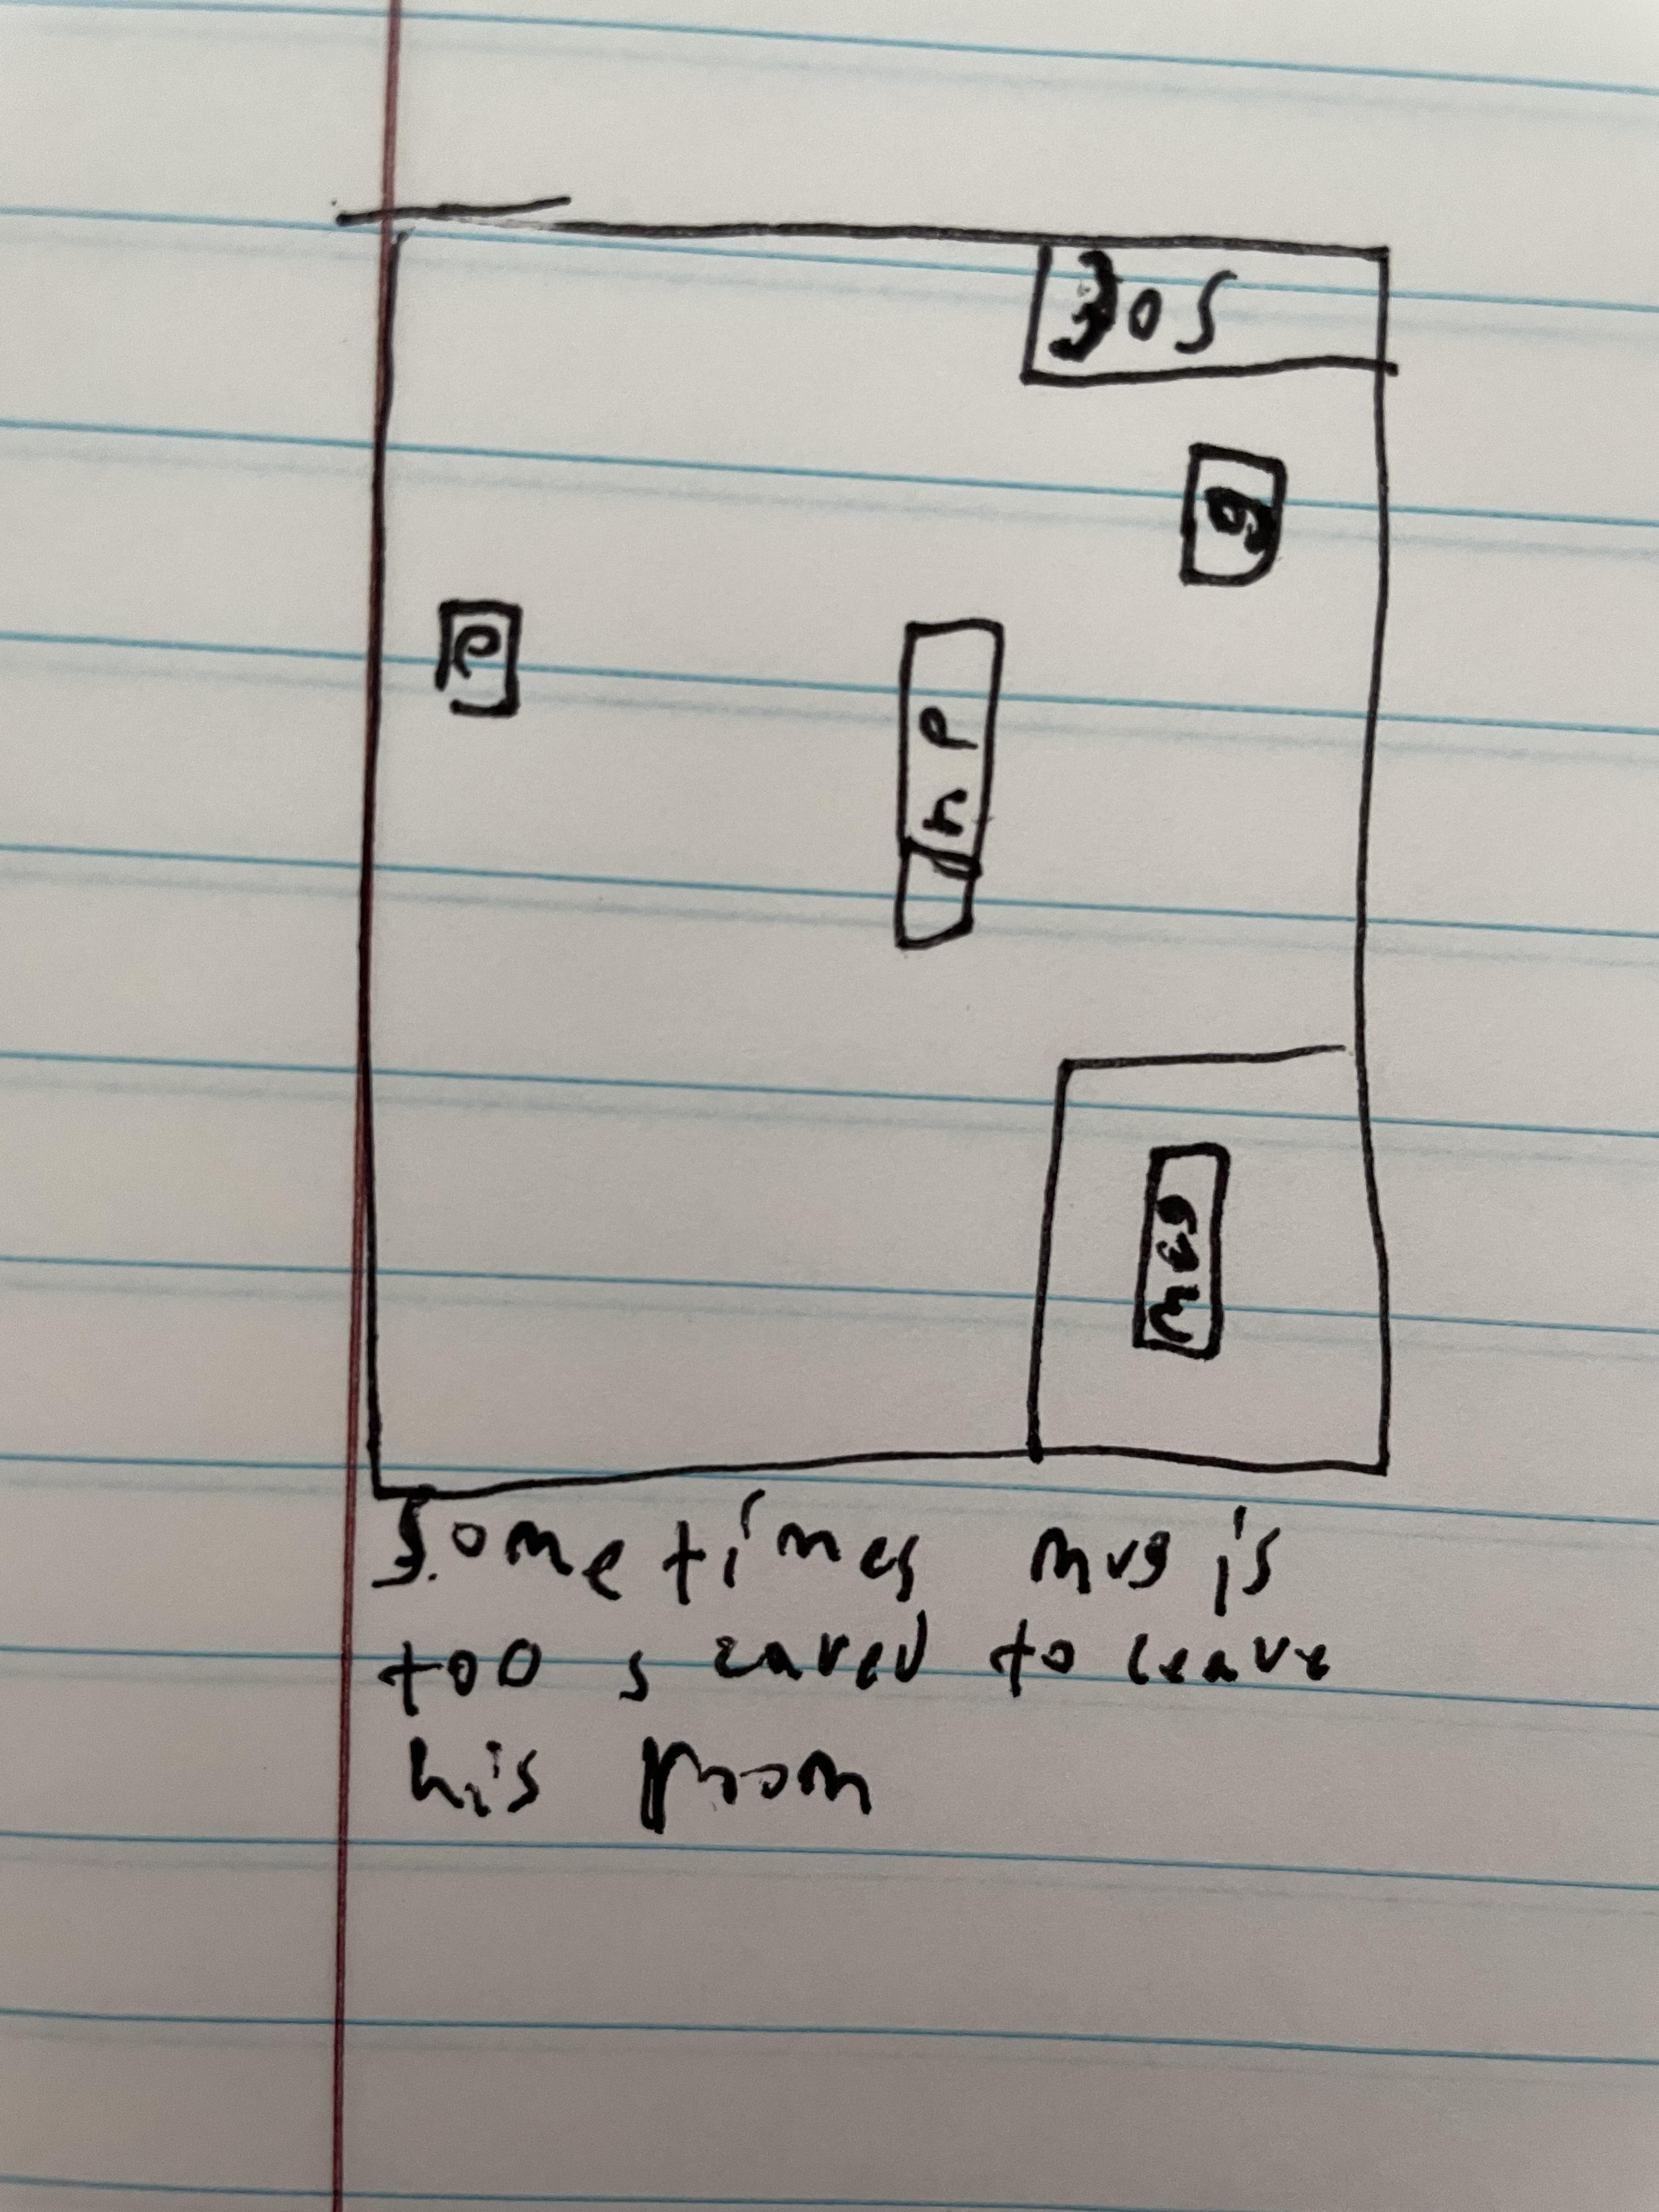 30S
g
e
h p
mvg
Sometimes mvg is
too scared to leave
his room